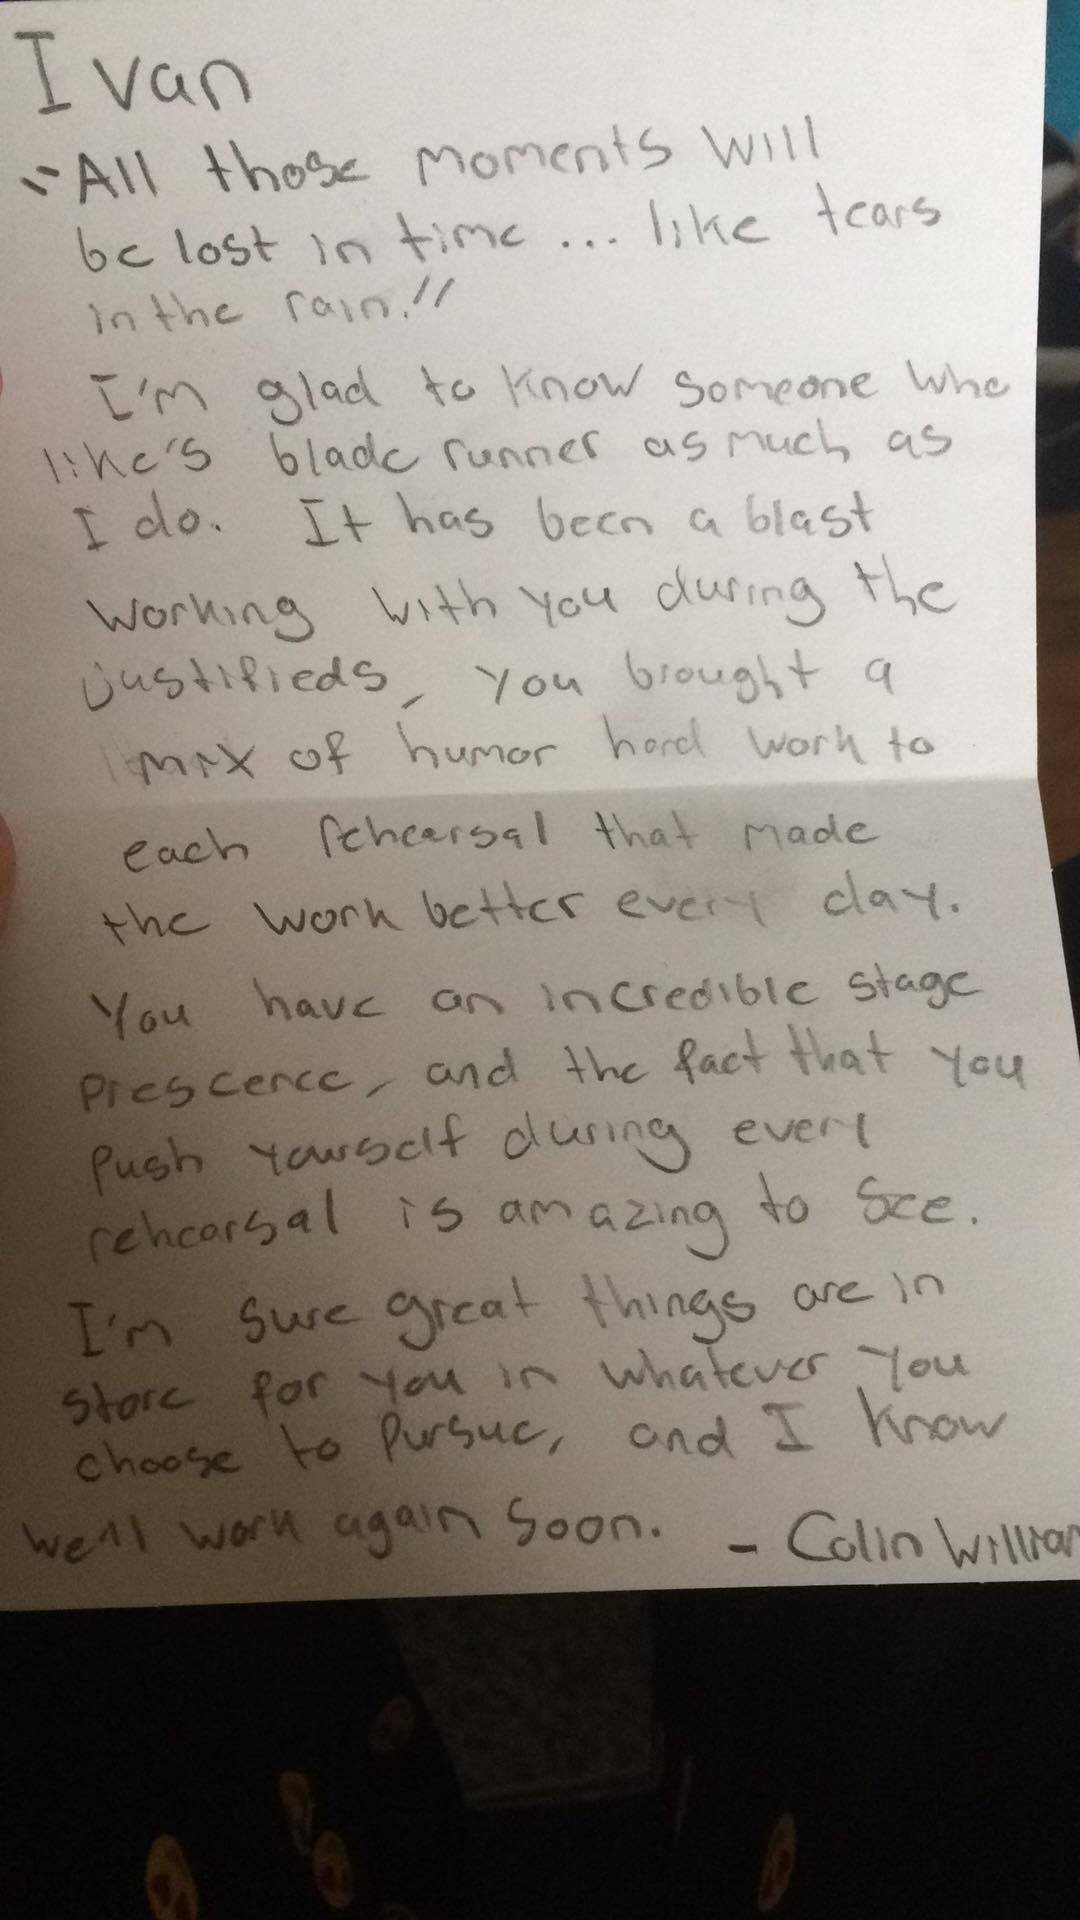 Ivan
"All those moments will
be lost in time ... like tears
in the rain."
I'm glad to know someone who
like's blade runner as much as
I do. It has been a blast
working with you during the
justifieds, you brought a
mix of humor hard work to
each rehearsal that made
the work better every day.
You have an incredible stage
prescence, and the fact that you
push yourself during every
rehearsal is amazing to see.
I'm sure great things are in
store for you in whatever you
choose to pursue, and I know
we'll work again soon. - Colin William